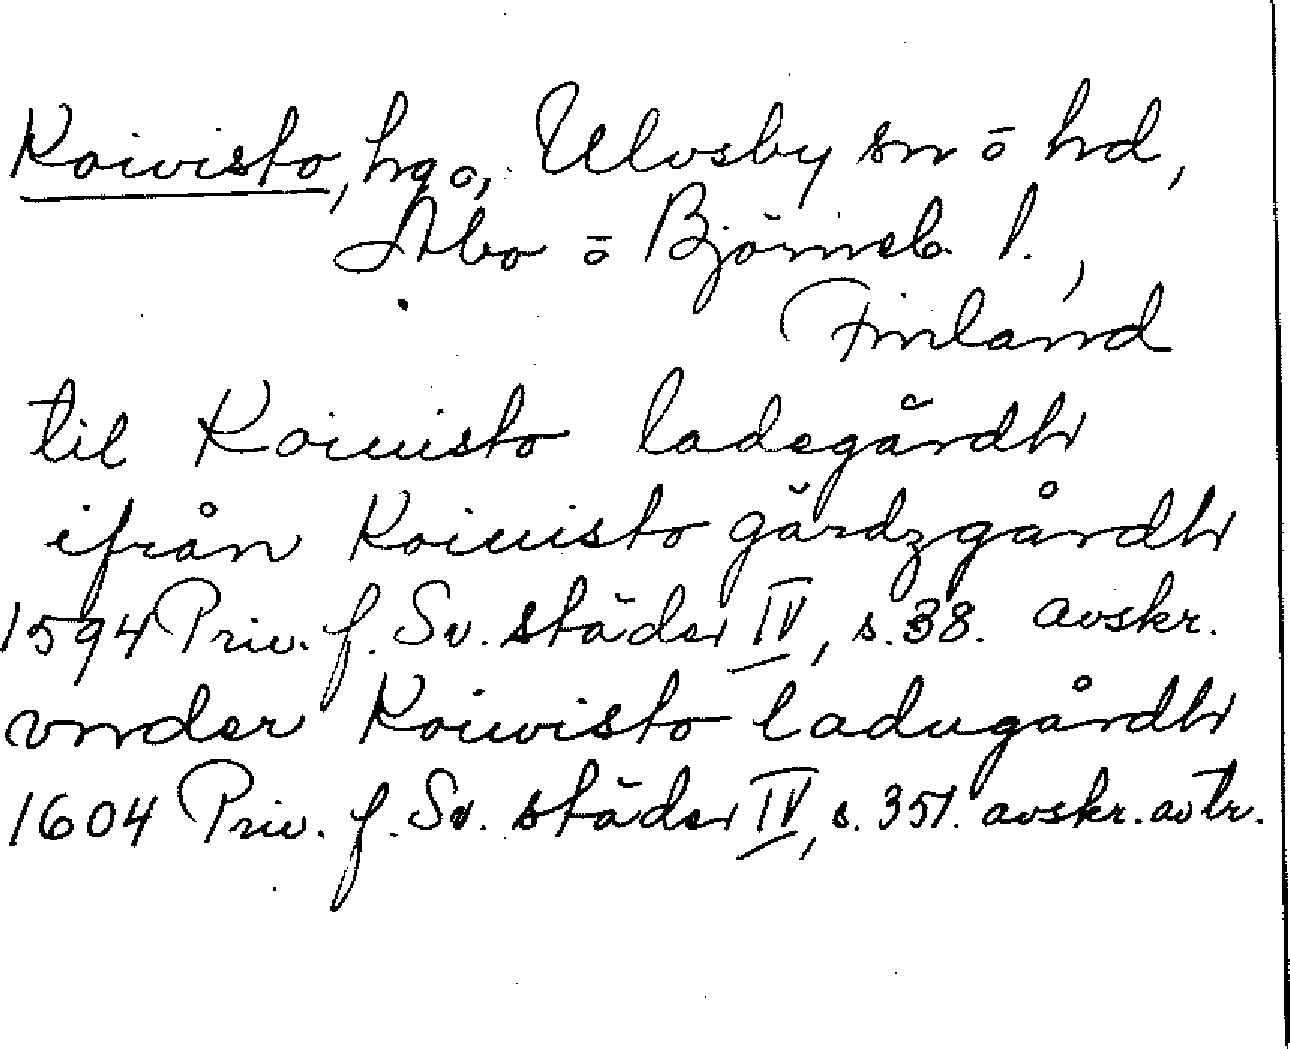 Koivisto, hg o, Ulvsby sn ō hd,
Åbo ō Björneb. l.,
Finland
til Koiuisto ladegårdh
ifrån Koiuisto gårdzgårdh
1594 Priv. f. Sv. städer IV, s. 38. avskr.
vnder Koiwisto ladugårdh
1604 Priv. f. Sv. städer IV, s. 351. avskr. av tr.